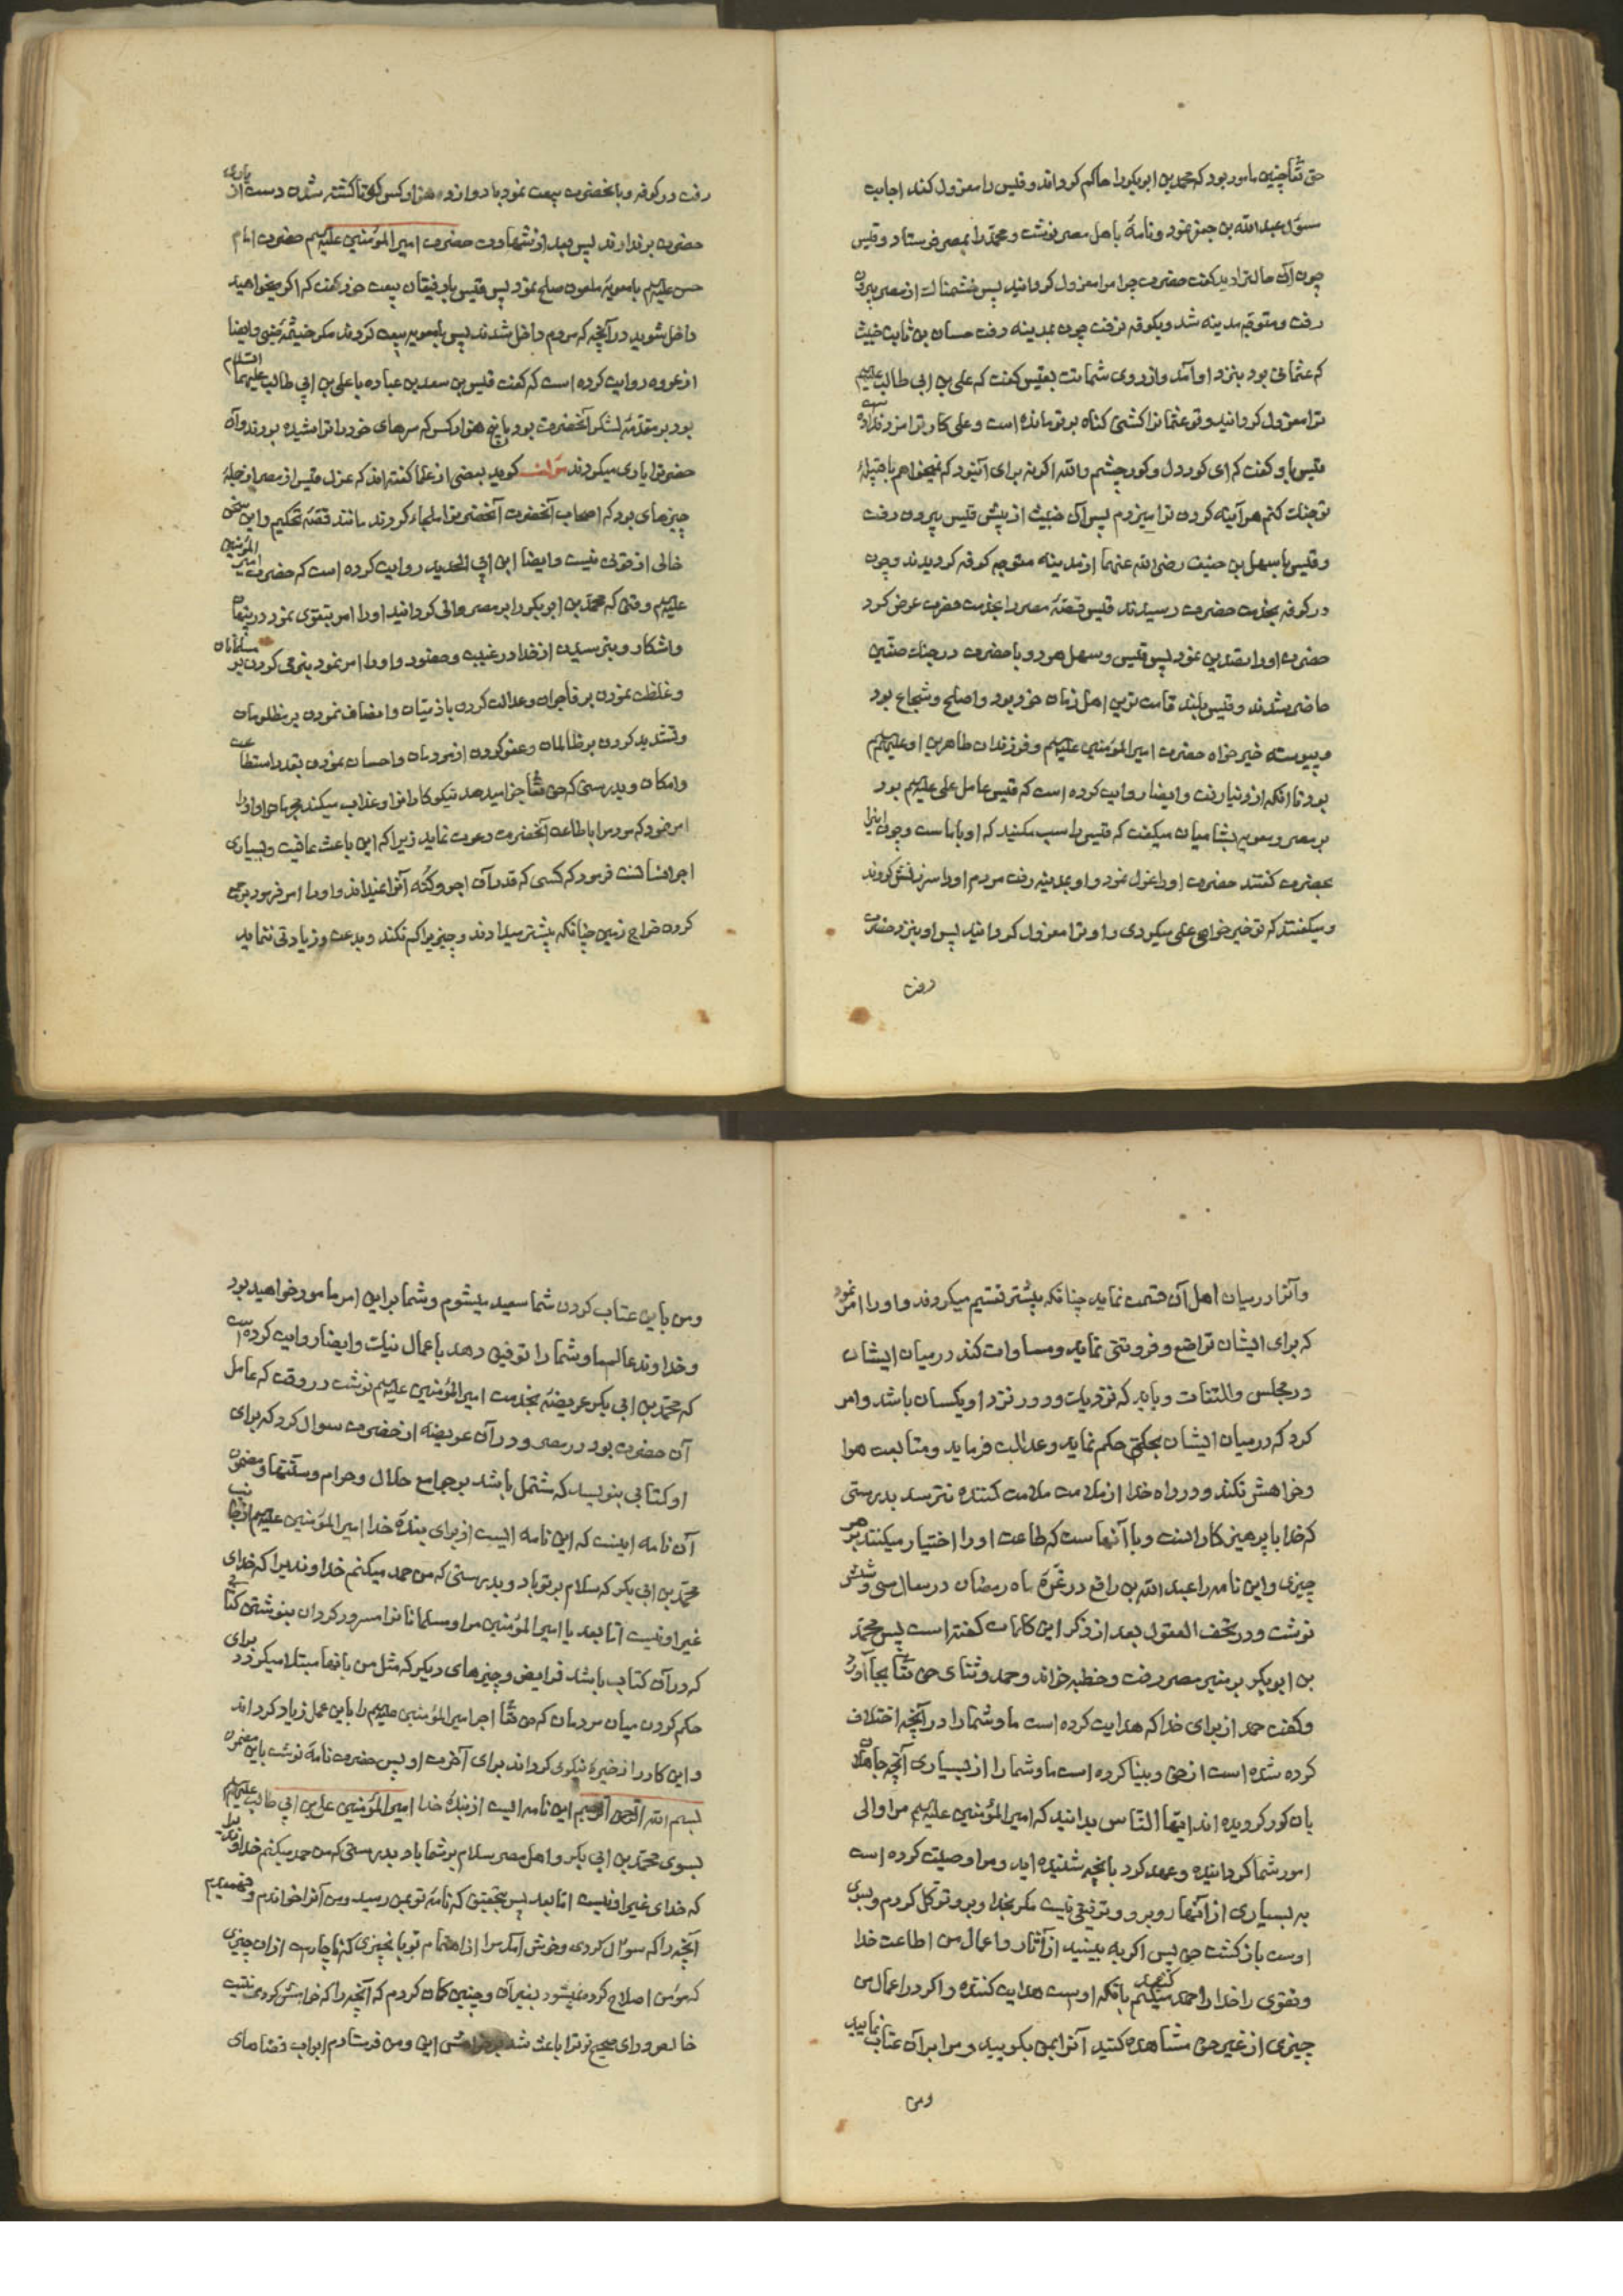 حق تعالی چنین مامور بود که محمد بن ابوبکر را حاکم کرداند و قیس را معزول کند اجابت
سؤال عبدالله بن جعفر نمود و نامهٔ باهل مصر نوشت و محمد را بمصر فرستاد و قیس
چون آن حالترا دید کفت حضرت چرا مرا معزول کردانید پس خشمناک از مصر بیرون
رفت و متوجه مدینه شد و بکوفه نرفت چون بمدینه رفت حسان بن ثابت خبیث
که عثمانی بود بنزد او آمد و از روی شماتت بقیس کفت که علی بن ابی طالب علیه السلام
ترا معزول کردانید و تو عثمانرا کشتی کناه بر تو مانده است و علی کار ترا مزد نداده
قیس باو کفت که ای کوردل و کور چشم والله اکر نه برای آن بود که نمیخواهم با قبیلهٔ
تو جنک کنم هرآینه کردن ترا میزدم پس آن خبیث از پیش قیس بیرون رفت
و قیس با سهل بن حنیف رضی الله عنهما از مدینه متوجه کوفه کردیدند و چون
در کوفه بخدمت حضرت رسیدند قیس قصهٔ مصر را بخدمت حضرت عرض کرد
حضرت او را تصدیق نمود پس قیس و سهل هر دو با حضرت در جنک صفین
حاضر شدند و قیس بلند قامت ترین اهل زمان خود بود و اصلح و شجاع بود
و پیوسته خیر خواه حضرت امیرالمؤمنین علیه السلام و فرزندان طاهرین او علیهم السلام
بود تا آنکه از دنیا رفت و ایضا روایت کرده است که قیس عامل علی علیه السلام بود
بر مصر و معویه بشامیان میکفت که قیس را سب مکنید که او با ماست و چون اینرا
بحضرت کفتند حضرت او را عزل نمود و او بمدینه رفت مردم او را سرزنش کردند
و میکفتند که تو خیر خواهی علی میکردی و او ترا معزول کردانید پس او بنزد حضرت
رفت
رفت در کوفه و با آنحضرت بیعت نمود با دوازده هزار کس که تا کشته شدن دست از یاری
حضرت برندارند پس بعد از شهادت حضرت امیرالمؤمنین علیه السلام حضرت امام
حسن علیه السلام با معویهٔ ملعون صلح نمود پس قیس با رفیقان بیعت خود کفت که اکر میخواهید
داخل شوید در آنچه که مردم داخل شدند پس با معویه بیعت کردند مکر خیثمهٔ ضبی و ایضا
از عروه روایت کرده است که کفت قیس بن سعد بن عباده با علی بن ابی طالب علیهما السلام
بود بر مقدمهٔ لشکر آنحضرت بود با پنج هزار کس که سرهای خود را تراشیده بودند و آن
حضرترا یاری میکردند مؤلف کوید بعضی از علما کفته اند که عزل قیس از مصر از جملهٔ
چیزهای بود که اصحاب آنحضرت آنحضرترا ملجاء کردند مانند قصهٔ تحکیم و این سخن
خالی از قوتی نیست و ایضا ابن ابی الحدید روایت کرده است که حضرت امیر المؤمنین
علیه السلام وقتی که محمد بن ابوبکر را بر مصر والی کردانید او را امر بتقوی نمود در پنهان
و اشکار و بترسیدن از خدا در غیبت و حضور و او را امر نمود بنرمی کردن بر مسلمانان
و غلظت نمودن بر فاجران و عدالت کردن با ذمیان و انصاف نمودن بر مظلومان
و تشدید کردن بر ظالمان و عفو کردن از مردمان و احسان نمودن بقدر استطاعت
و امکان و بدرستی که حق تعالی جزا میدهد نیکوکارانرا و عذاب میکند مجرمان را و او را
امر نمود که مردمرا باطاعت آنحضرت دعوت نماید زیرا که این باعث عاقبت و بسیاری
اجر انسانست فرمود که کسی که قدر آن اجر و کنه آنرا نمیداند و او را امر فرمود بجمع
کردن خراج زمین چنانکه پیشتر میدادند و چیزیرا کم نکند و بدعت و زیادتی ننماید
و آنرا در میان اهل آن قسمت نماید چنانکه پیشتر تقسیم میکردند و او را امر نمود
که برای ایشان تواضع و فروتنی نماید و مساوات کند در میان ایشان
در مجلس و التفات و باید که نزدیک و دور نزد او یکسان باشد و امر
کرد که در میان ایشان بحکم حق حکم نماید و عدالت فرماید و متابعت هوا
و خواهش نکند و در راه خدا از ملامت ملامت کننده نترسد بدرستی
که خدا با پرهیزکارانست و با آنهاست که طاعت او را اختیار میکنند بر هر
چیزی و این نامه را عبدالله بن رافع در غرهٔ ماه رمضان در سال سی و شش
نوشت و در تحف العقول بعد از ذکر این کلمات کفته است پس محمد
بن ابوبکر بر منبر مصر رفت و خطبه خواند و حمد و ثنای حق تعالی بجا آورد
و کفت حمد از برای خدا که هدایت کرده است ما و شما را در آنچه اختلاف
کرده شده است از حق و بینا کرده است ما و شما را از بسیاری آنچه جاهلان
بان کور کردیده اند ایها الناس بدانید که امیرالمؤمنین علیه السلام مرا والی
امور شما کردانیده و عهد کرد بانچه شنیده اید و مرا وصیت کرده است
به بسیاری از آنها روبرو و توفیقی نیست مکر بخدا و برو توکل کردم و بسوی
اوست بازکشت من پس اکر به بینید از آثار و اعمال من اطاعت خدا
و تقوی را خدا را حمد کنید بانکه اوست هدایت کننده و اکر در اعمال من
چیزی از غیر حق مشاهده کنید آنرا بمن بکویید و مرا بر آن عتاب نمایید
ومن
ومن باین عتاب کردن شما سعید میشوم و شما براین امر مامور خواهید بود
و خداوند عالم ما و شما را توفیق دهد باعمال نیک و ایضا روایت کرده است
که محمد بن ابی بکر عریضهٔ بخدمت امیرالمؤمنین علیه السلام نوشت در وقت که عامل
آن حضرت بود در مصر و در آن عریضه از حضرت سوال کرد که برای
او کتابی بنویسد که مشتمل باشد بر جوامع حلال و حرام و سنتها و مضمون
آن نامه اینست که این نامه ایست از برای بندهٔ خدا امیرالمؤمنین علیه السلام از جانب
محمد بن ابی بکر که سلام بر تو باد و بدرستی که من حمد میکنم خداوندیرا که خدای
غیر او نیست اما بعد یا امیرالمؤمنین مرا و مسلمانانرا مسرور کردان بنوشتن کتابی
که در آن کتاب باشد فرایض و چیزهای دیکر که مثل من بانها مبتلا میکردد برای
حکم کردن میان مردمان که حق تعالی اجر امیرالمؤمنین علیه السلام را باین عمل زیاد کرداند
و این کار را ذخیرهٔ نیکوی کرداند برای آخرت او پس حضرت نامهٔ نوشت باین مضمون
بسم الله الرحمن الرحیم این نامه ایست از بندهٔ خدا امیرالمؤمنین علی بن ابی طالب علیه السلام
بسوی محمد بن ابی بکر و اهل مصر سلام بر شما باد و بدرستی که من حمد میکنم خداوندیرا
که خدای غیر او نیست اما بعد پس بتحقیق که نامهٔ تو بمن رسید و من آنرا خواندم و فهمیدم
آنچه را که سوال کردی و خوش آمد مرا از اهتمام تو بانچیزی که ناچارست از ان چیزی
که مؤمن اصلاح کرده نمیشود بغیر آن و چنین کمان کردم که آنچه را که خواهش کردی نیت
خالص و رای صحیح تو ترا باعث شد بر خواهش این ومن فرستادم ابواب قضاهای